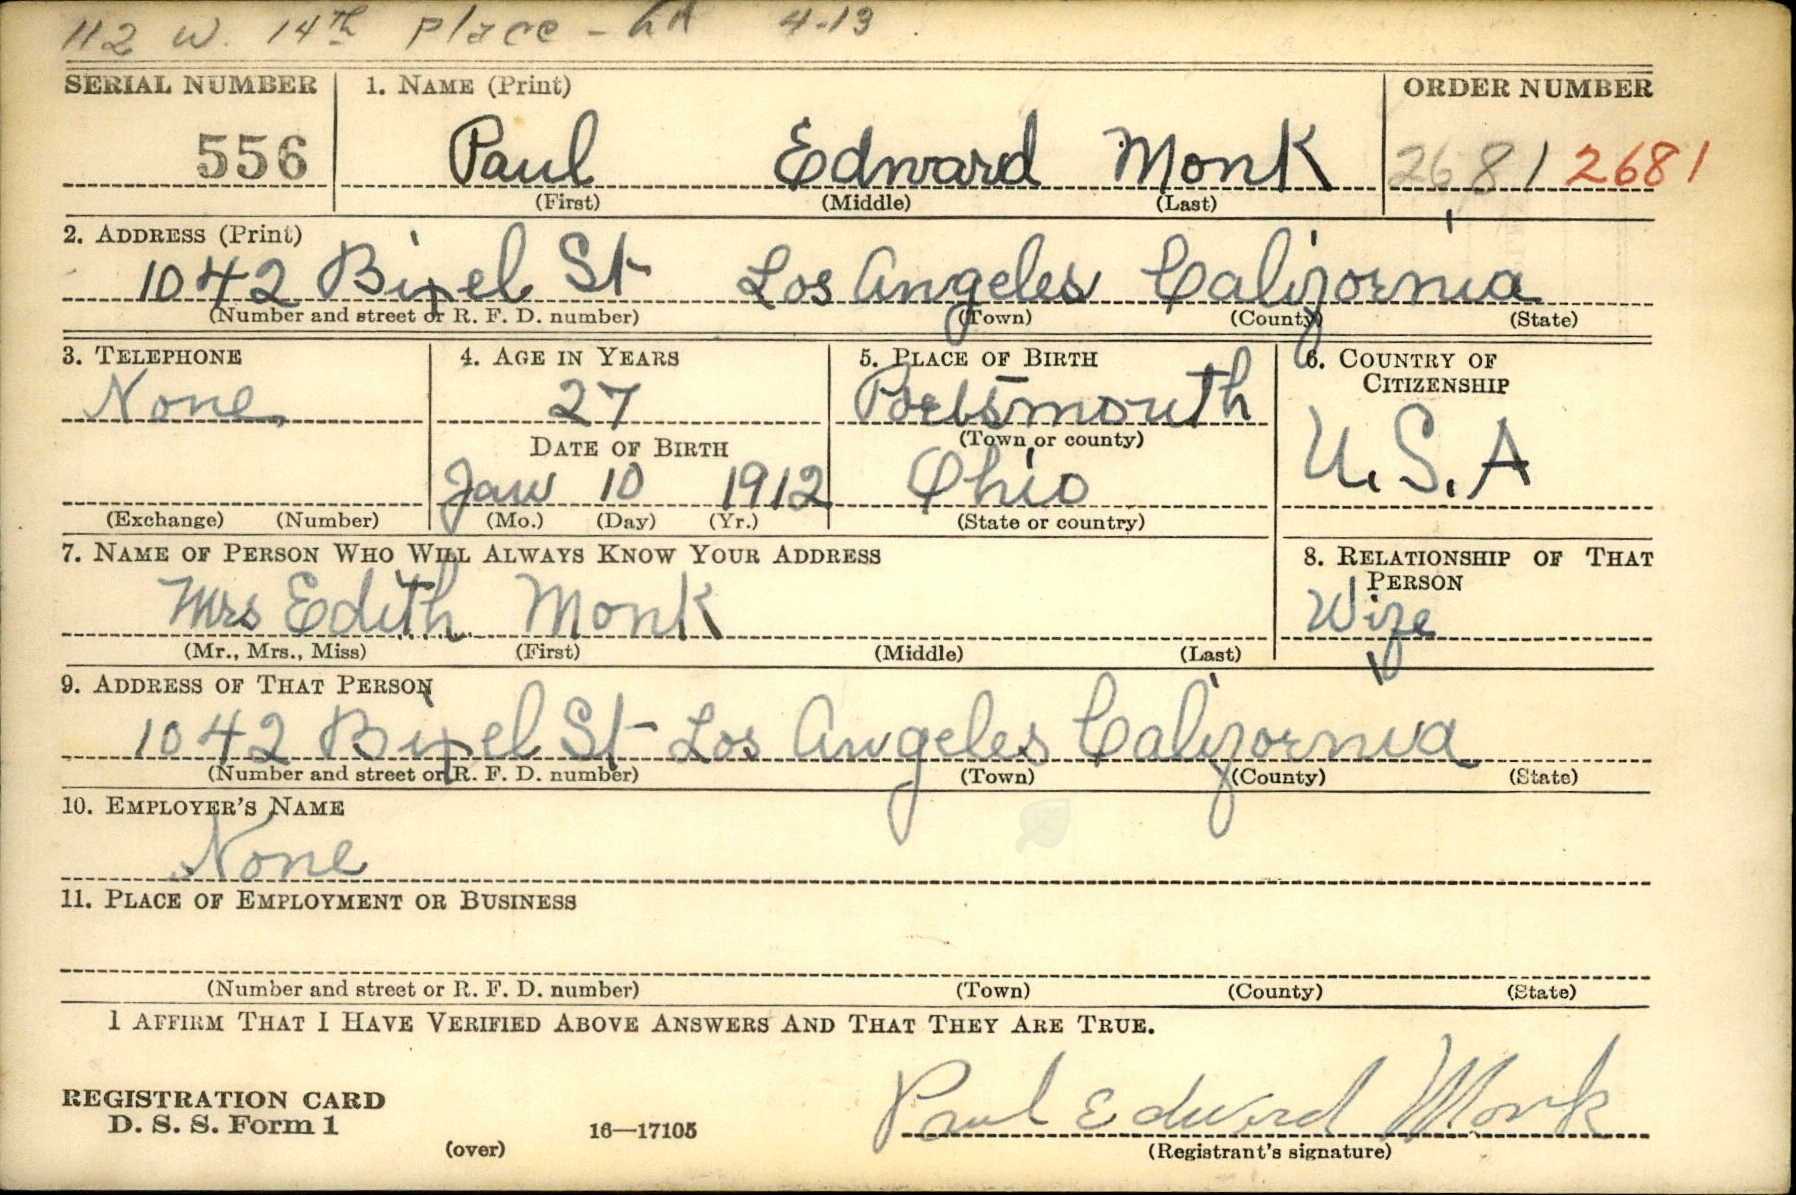 112 W. 14th Place - LA 4-13
SERIAL NUMBER 1. NAME (Print) ORDER NUMBER
556 Paul Edward Monk 2681 2681
(First) (Middle) (Last)
2. ADDRESS (Print)
1042 Bixel St Los Angeles California
(Number and street or R. F. D. number) (Town) (County) (State)
3. TELEPHONE 4. AGE IN YEARS 5. PLACE OF BIRTH 6. COUNTRY OF CITIZENSHIP
None 27 Portsmouth
DATE OF BIRTH (Town or county)
Jan 10 1912 Ohio U.S.A
(Exchange) (Number) (Mo.) (Day) (Yr.) (State or country)
7. NAME OF PERSON WHO WILL ALWAYS KNOW YOUR ADDRESS 8. RELATIONSHIP OF THAT PERSON
Mrs Edith Monk Wife
(Mr., Mrs., Miss) (First) (Middle) (Last)
9. ADDRESS OF THAT PERSON
1042 Bixel St Los Angeles California
(Number and street or R. F. D. number) (Town) (County) (State)
10. EMPLOYER'S NAME
None
11. PLACE OF EMPLOYMENT OR BUSINESS
(Number and street or R. F. D. number) (Town) (County) (State)
I AFFIRM THAT I HAVE VERIFIED ABOVE ANSWERS AND THAT THEY ARE TRUE.
REGISTRATION CARD
D. S. S. Form 1 Paul Edward Monk
(over) 16—17105 (Registrant's signature)